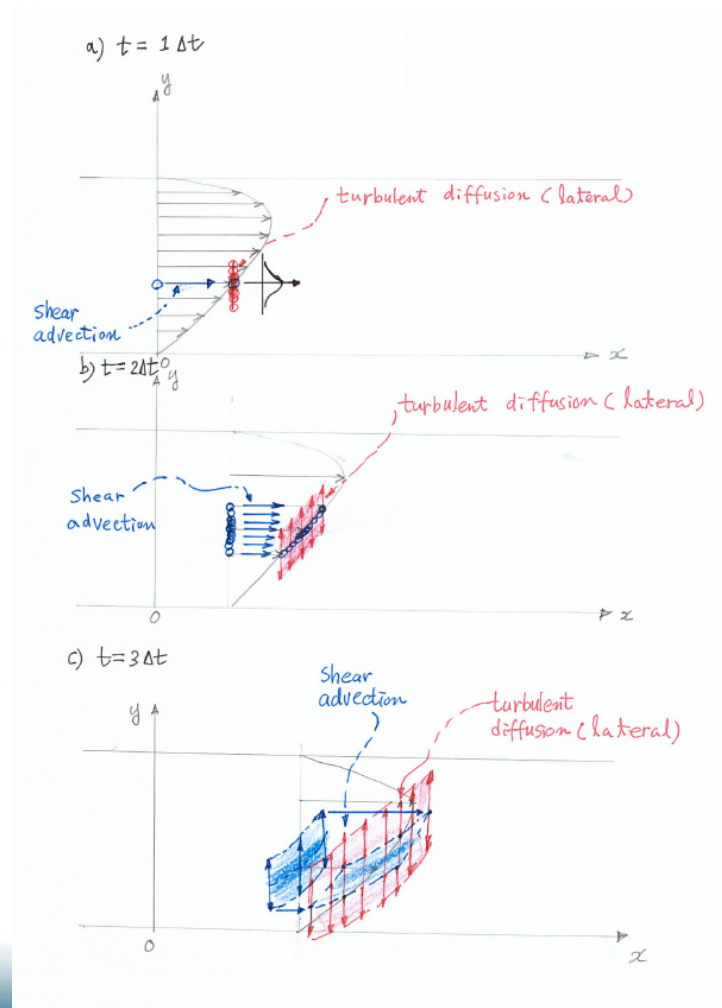 a) t = 1 Δt
y
turbulent diffusion (lateral)
shear
advection
x
0
b) t = 2Δt
y
turbulent diffusion (lateral)
Shear
advection
0
x
c) t = 3Δt
Shear
advection
turbulent
diffusion (lateral)
y
0
x